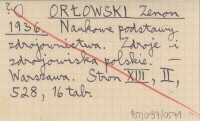 ORŁOWSKI Zenon
1936. Naukowe podstawy
zdrojownictwa. Zdroje i
zdrojowiska polskie. —
Warszawa. Stron XIII, II,
528, 16 tab.